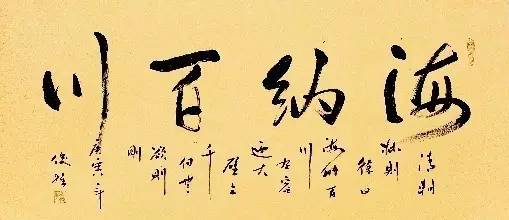 海納百川
清朝
林則
徐曰
海納百
川
有容
迺大
壁立
千
仞無
欲則
剛
庚寅年